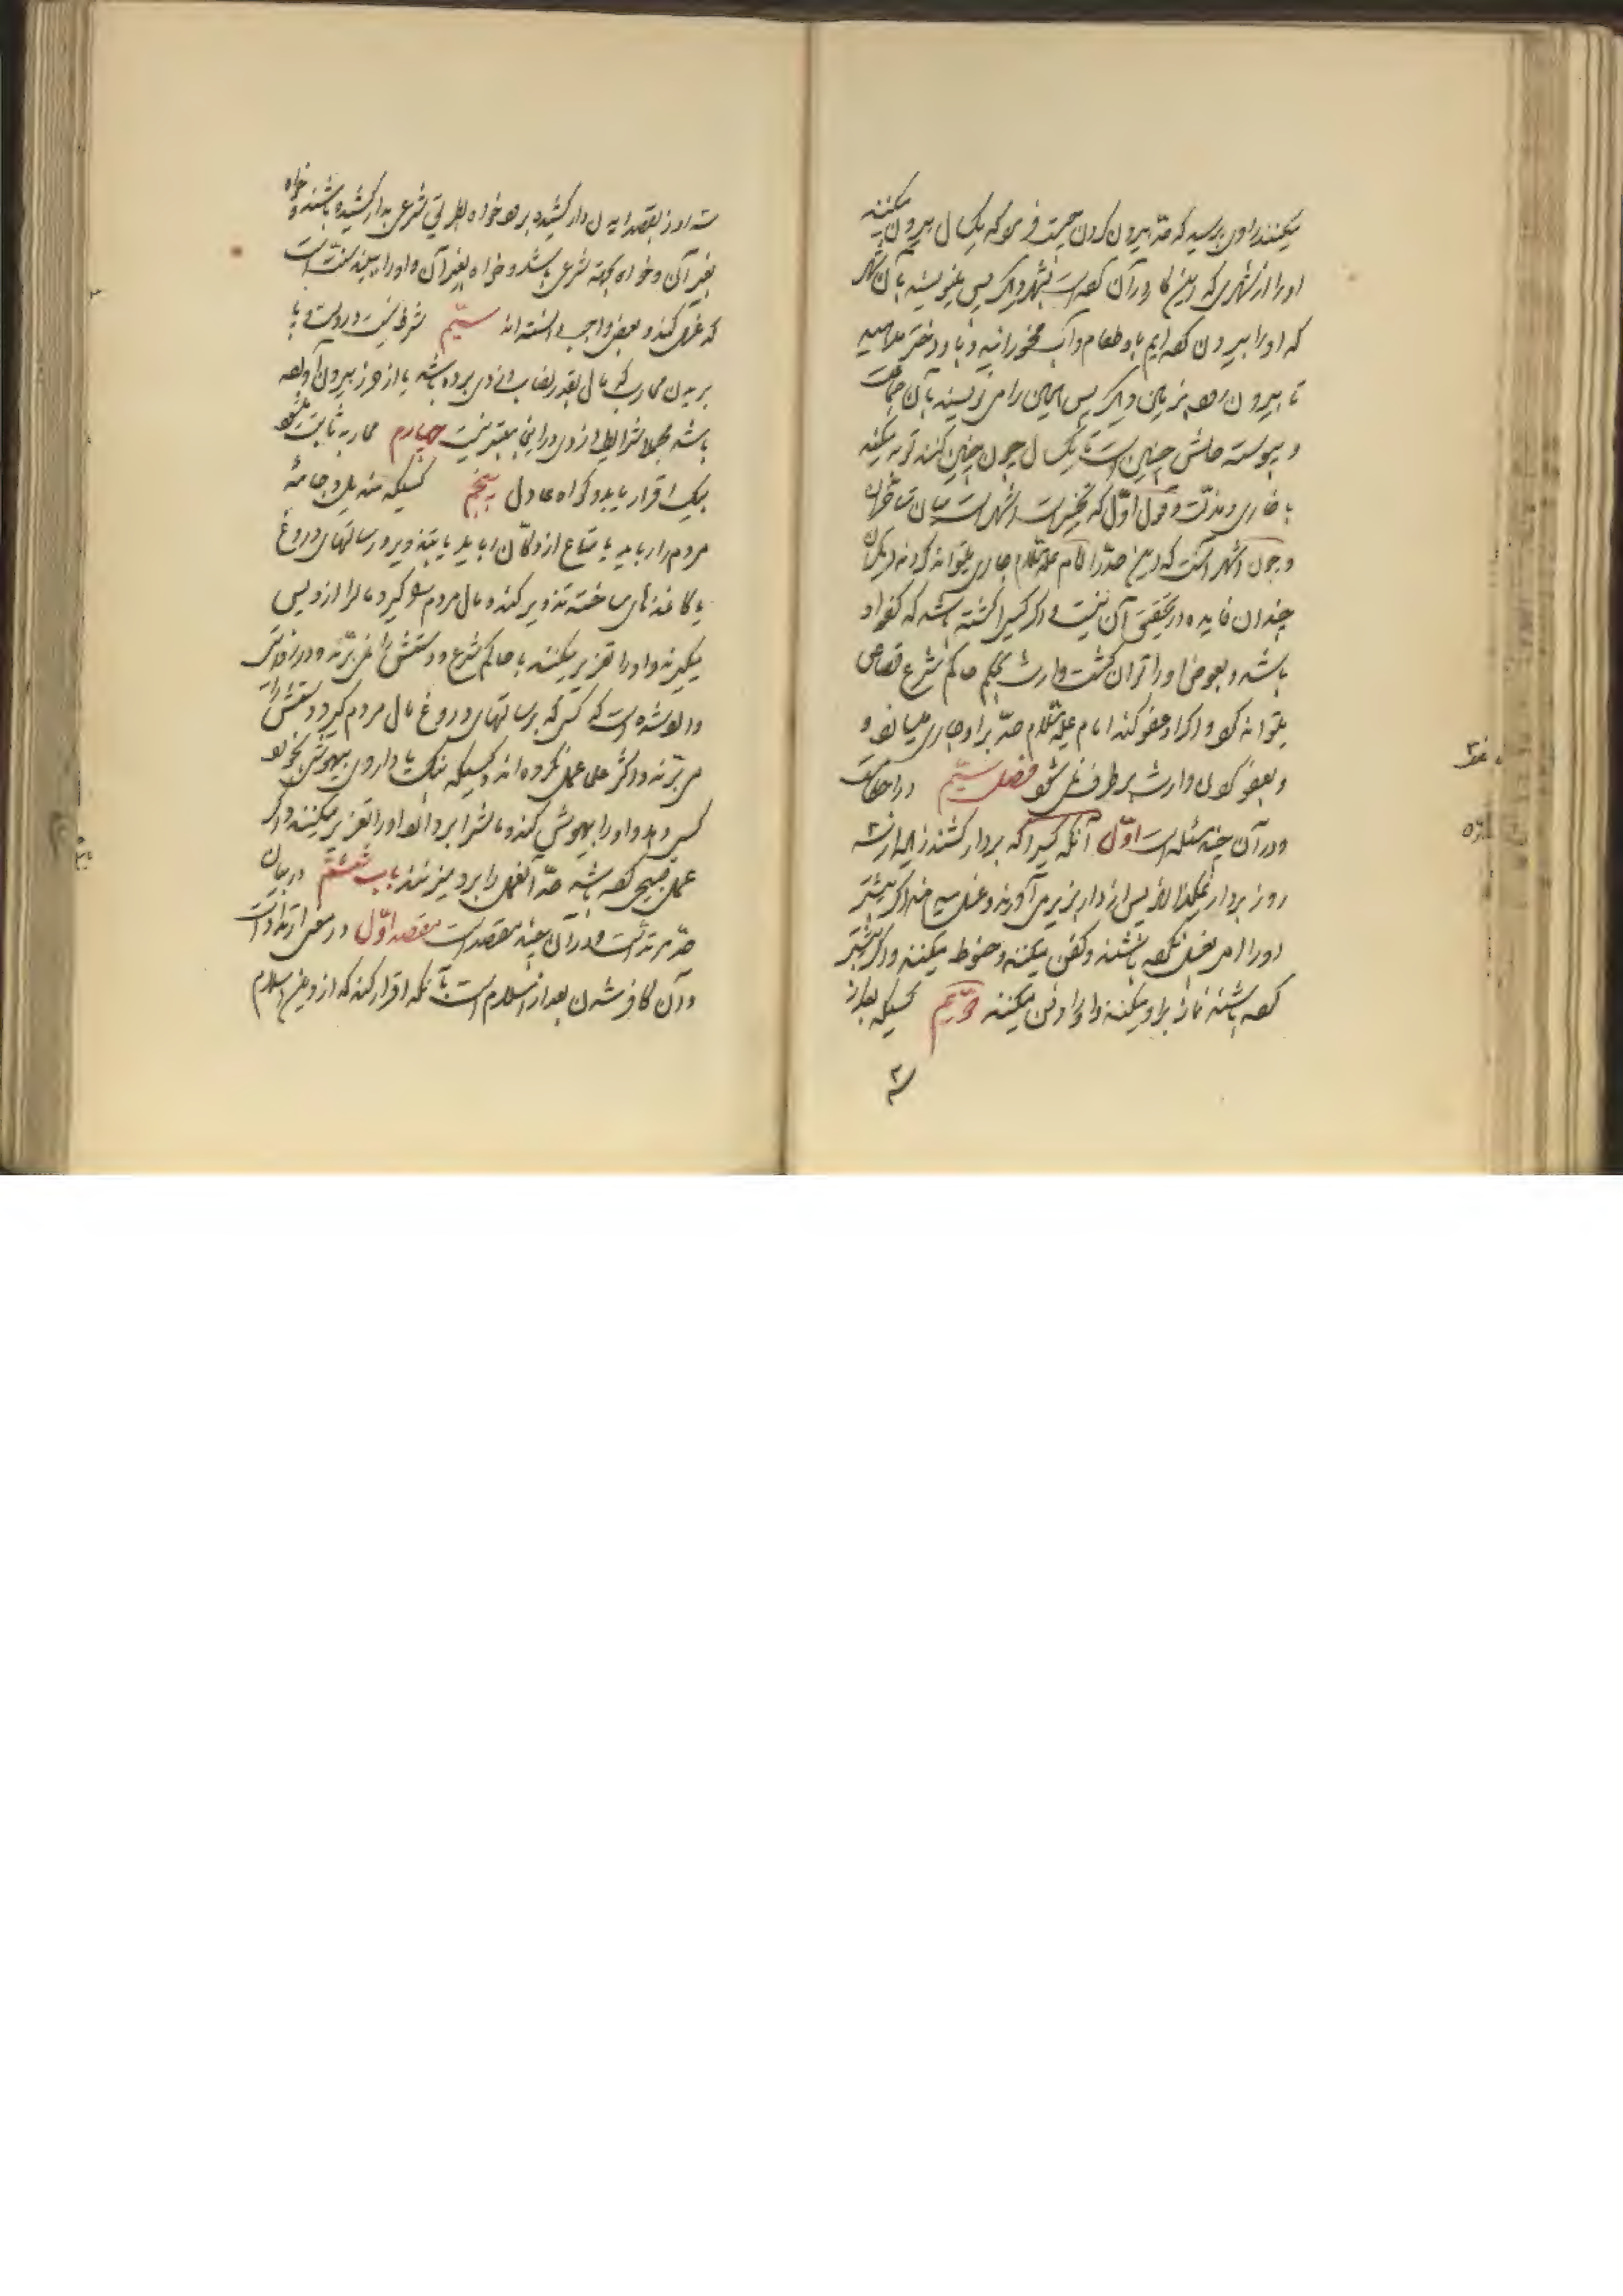 میکنند راوی پرسید که حد بیرون کردن چیست فرمود که یک سال بیرون میکنند
او را از شهری که این کار در آن کرده است بشهر دیگر پس مینویسند بآن شهر
که او را بیرون کرده ایم باو طعام و آب مخورانید و باو دختر مدهید
تا بیرون رود پس باین دیگر پس همین را می نویسند بآن جماعت
و پیوسته حالش چنین است تا یک سال چون چنین کنند توبه میکند
با خواری و مذلت و قول اول که تخییر است اشهر است میان متأخران
و چون اشهر آنست که این حد را امام علیه السلام جاری میتواند کرد نه دیگران
چندان فایده در تحقیق آن نیست و اگر کسی را کشته باشد که کفو او
باشد و بعوض او را توان کشت وارث بحکم حاکم شرع قصاص
میتواند کرد و اگر او عفو کند امام علیه السلام حد بر او جاری میسازد و
و بعفو کردن وارث برطرف نمی شود فصل سیم در احکامست
و در آن چند مسئله است اول آنکه کسی را که بردار کشند زیاده از سه
روز بردار نمیگذارند پس از دار بزیر می آورند و غسل میدهند اگر پیشتر
او را امر بغسل نکرده باشند و کفن میکنند و حنوط میکنند و اگر پیشتر
کرده باشند نماز بر او میکنند و او را دفن میکنند دویم کسیکه بعد از
سه
سه روز بقصد ایدن دار کشیده برود خواه بطریق شرعی بدار کشیده باشند و خواه
بغیر آن و خواه جهة شرعی باشد و خواه بغیر آن و او را ببیند سنت است
که غسل کند و بعضی واجب دانسته اند سیم شرط نیست در دست و پا
بریدن محارب که مال بقدر نصاب دزدی برده باشد یا از حرز بیرون آورده
باشد مجملا شرایط دزدی در اینجا معتبر نیست چهارم محاربه ثابت میشود
بیک اقرار یا بدو گواه عادل پنجم کسیکه مندیل و جامهٔ
مردم را رباید یا متاع از دکان رباید یا بتزویر و رسالتهای دروغ
یا کاغذهای ساخته تزویر کند و مال مردم را بگیرد مال را از او پس
میگیرند و او را تعزیر میکنند با حاکم شرع و دستش را نمی برند و در روایتی
وارد شده است که کسی که برسالتهای دروغ مال مردم گیرد دستش را
می برند و اکثر علما عمل نکرده اند و کسیکه بنگ یا داروی بیهوشی بخورد
کسی دهد و او را بیهوش کند و مالش را بردارد او را تعزیر میکنند و اگر
عمل قبیحی کرده باشد حد آنعمل را برو میزنند باب ششم در بیان
حد مرتد است و در آن چند مقصد است مقصد اول در معنی ارتداد است
و آن کافر شدن بعد از اسلام است بآنکه اقرار کند که از دین اسلام